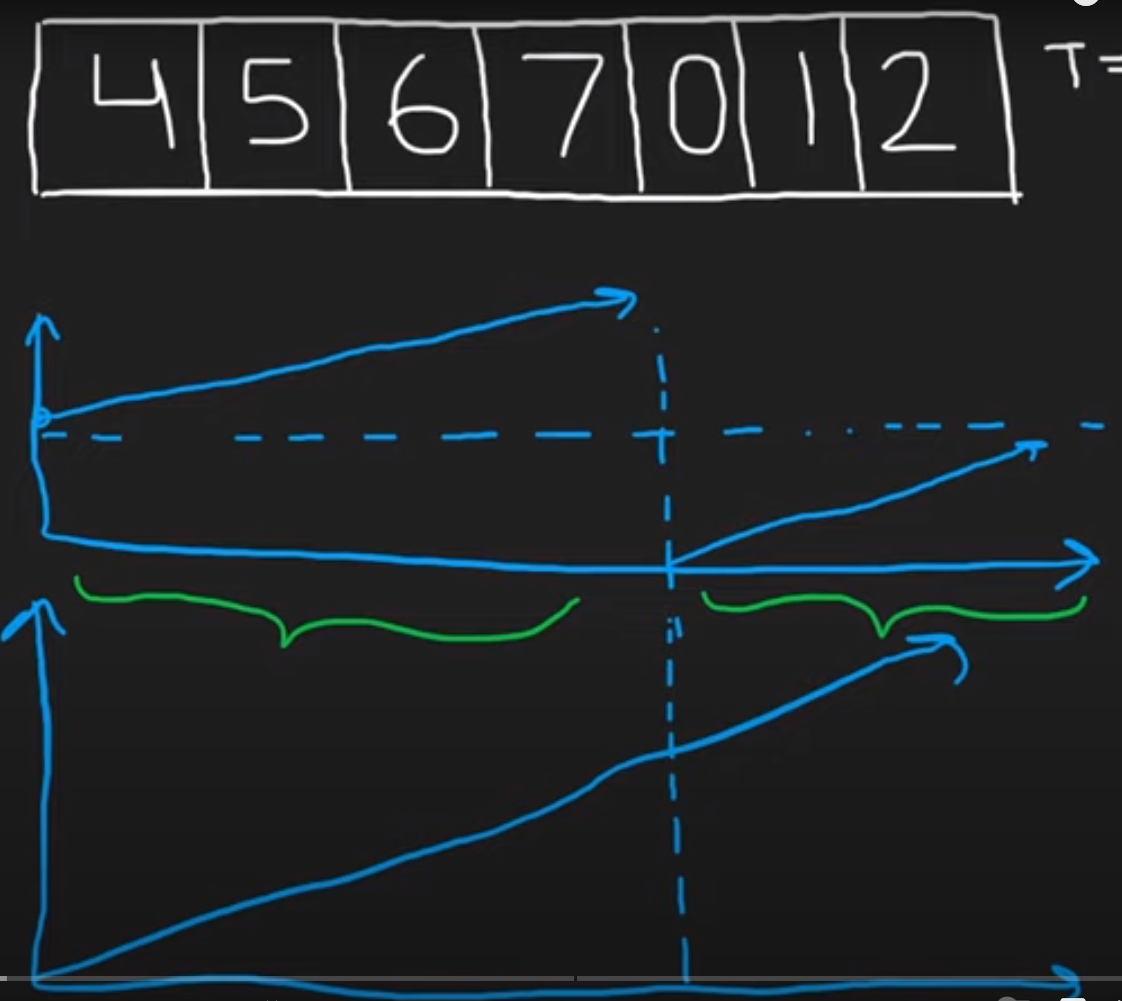 4 5 6 7 0 1 2 T=